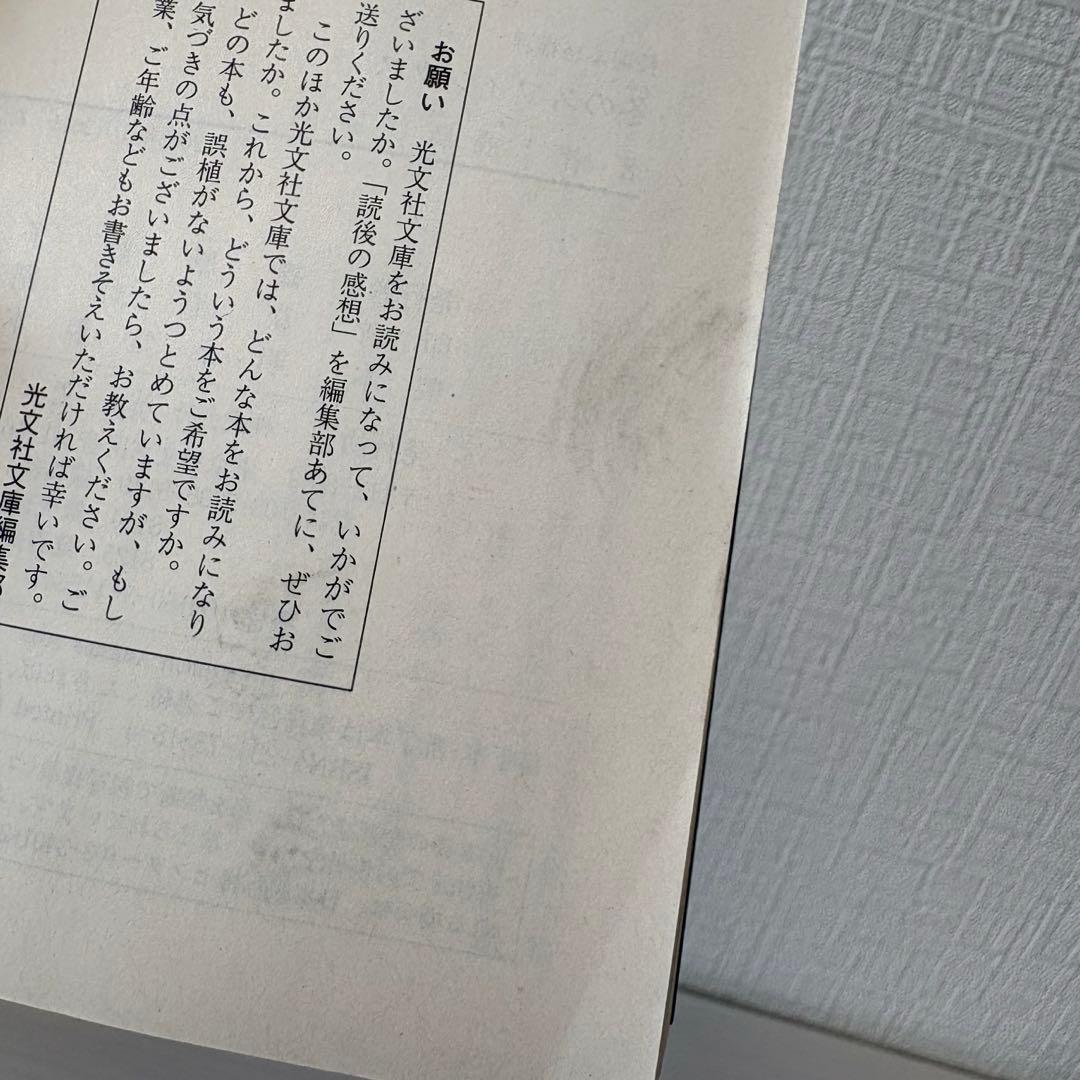 お願い 光文社文庫をお読みになって、いかがでご
ざいましたか。「読後の感想」を編集部あてに、ぜひお
送りください。
このほか光文社文庫では、どんな本をお読みになり
ましたか。これから、どういう本をご希望ですか。
どの本も、誤植がないようつとめていますが、もし
気づきの点がございましたら、お教えください。ご
業、ご年齢などもお書きそえいただければ幸いです。
光文社文庫編集部